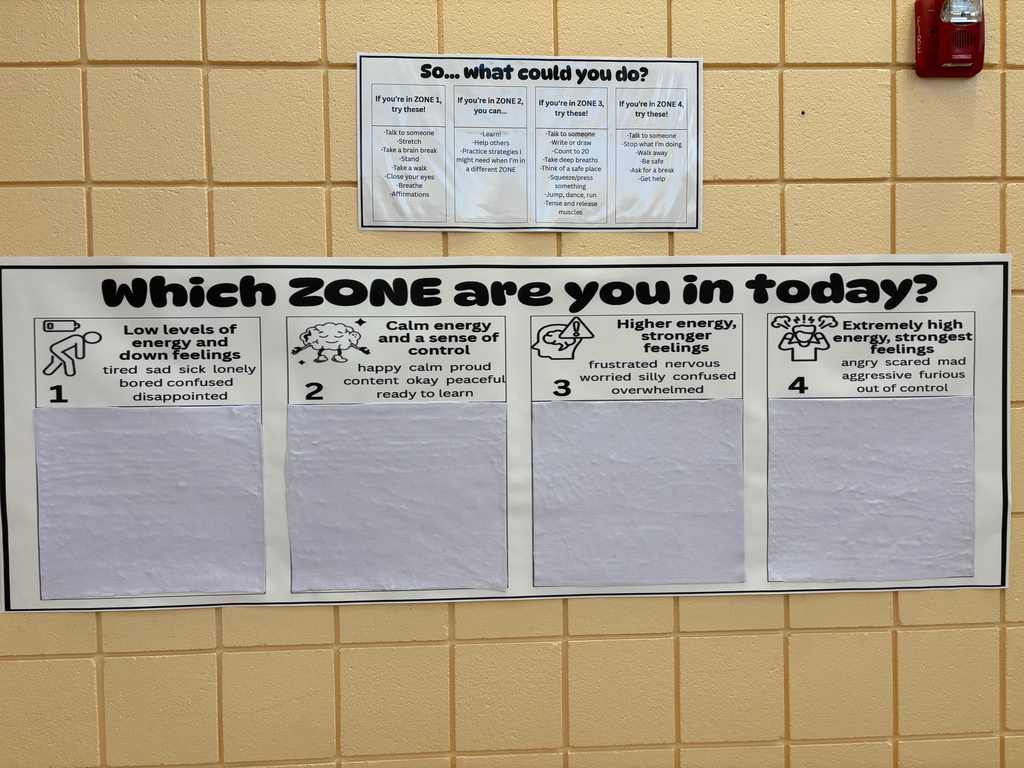 So... what could you do?
If you're in ZONE 1,
try these!
-Talk to someone
-Stretch
-Take a brain break
-Stand
-Take a walk
-Close your eyes
-Breathe
-Affirmations
If you're in ZONE 2,
you can...
-Learn!
-Help others
-Practice strategies I
might need when I'm in
a different ZONE
If you're in ZONE 3,
try these!
-Talk to someone
-Write or draw
-Count to 20
-Take deep breaths
-Think of a safe place
-Squeeze/press
something
-Jump, dance, run
-Tense and release
muscles
If you're in ZONE 4,
try these!
-Talk to someone
-Stop what I'm doing
-Walk away
-Be safe
-Ask for a break
-Get help
FIRE
Which ZONE are you in today?
Low levels of
energy and
down feelings
tired sad sick lonely
bored confused
disappointed
1
Calm energy
and a sense of
control
happy calm proud
content okay peaceful
ready to learn
2
Higher energy,
stronger
feelings
frustrated nervous
worried silly confused
overwhelmed
3
Extremely high
energy, strongest
feelings
angry scared mad
aggressive furious
out of control
4